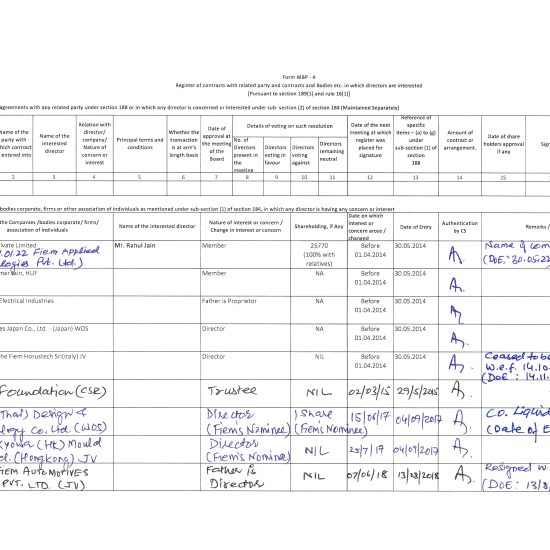 Form MBP - 4
Register of contracts with related party and contracts and Bodies etc. in which directors are interested
[Pursuant to section 189(1) and rule 16(1)]
agreements with any related party under section 188 or in which any director is concerned or interested under sub- section (2) of section 184 (Maintained Separately)
Name of the party with which contract entered into
Name of the interested director
Relation with director/ company/ Nature of concern or interest
Principal terms and conditions
Whether the transaction is at arm's length basis
Date of approval at the meeting of the Board
Details of voting on such resolution
No. of Directors present in the meeting
Directors voting in favour
Directors voting against
Directors remaining neutral
Date of the next meeting at which register was placed for signature
Reference of specific items – (a) to (g) under sub-section (1) of section 188
Amount of contract or arrangement.
Date of share holders approval if any
2 3 4 5 6 7 8 9 10 11 12 13 14 15
bodies corporate, firms or other association of individuals as mentioned under sub-section (1) of section 184, in which any director is having any concern or interest
the Companies /bodies corporate/ firms/ association of individuals
Name of the interested director
Nature of interest or concern / Change in interest or concern
Shareholding, if Any
Date on which interest or concern arose / changed
Date of Entry
Authentication by CS
Remarks /
Limited
.01.22 Fiem Applied
Pvt. Ltd.)
Mr. Rahul Jain
Member
25770 (100% with relatives)
Before 01.04.2014
30.05.2014
Name of
(DOE: 30.05.22
HUF
Member
NA
Before 01.04.2014
30.05.2014
Electrical Industries
Father is Proprietor
NA
Before 01.04.2014
30.05.2014
Japan Co., Ltd. - (Japan) WOS
Director
NA
Before 01.04.2014
30.05.2014
the Fiem Horustech Srl(Italy) JV
Director
NIL
Before 01.04.2014
30.05.2014
Ceased to be
w.e.f. 14.10
(DOE: 14.11.
Foundation (CSE)
Trustee
NIL
02/03/15
29/5/2015
Thai) Design &
Co. Ltd. (WOS)
Director
(Fiem's Nominee)
1 Share
(Fiem's Nominee)
15/06/17
04/09/2017
Co. Liquid
(Date of E
(HK) Mould
(Hongkong) JV
Director
(Fiem's Nominee)
NIL
25/7/17
04/09/2017
FIEM AUTOMOTIVES
PVT. LTD. (JV)
Father is
Director
NIL
07/06/18
13/28/2018
Resigned w
(DOE: 13/8/